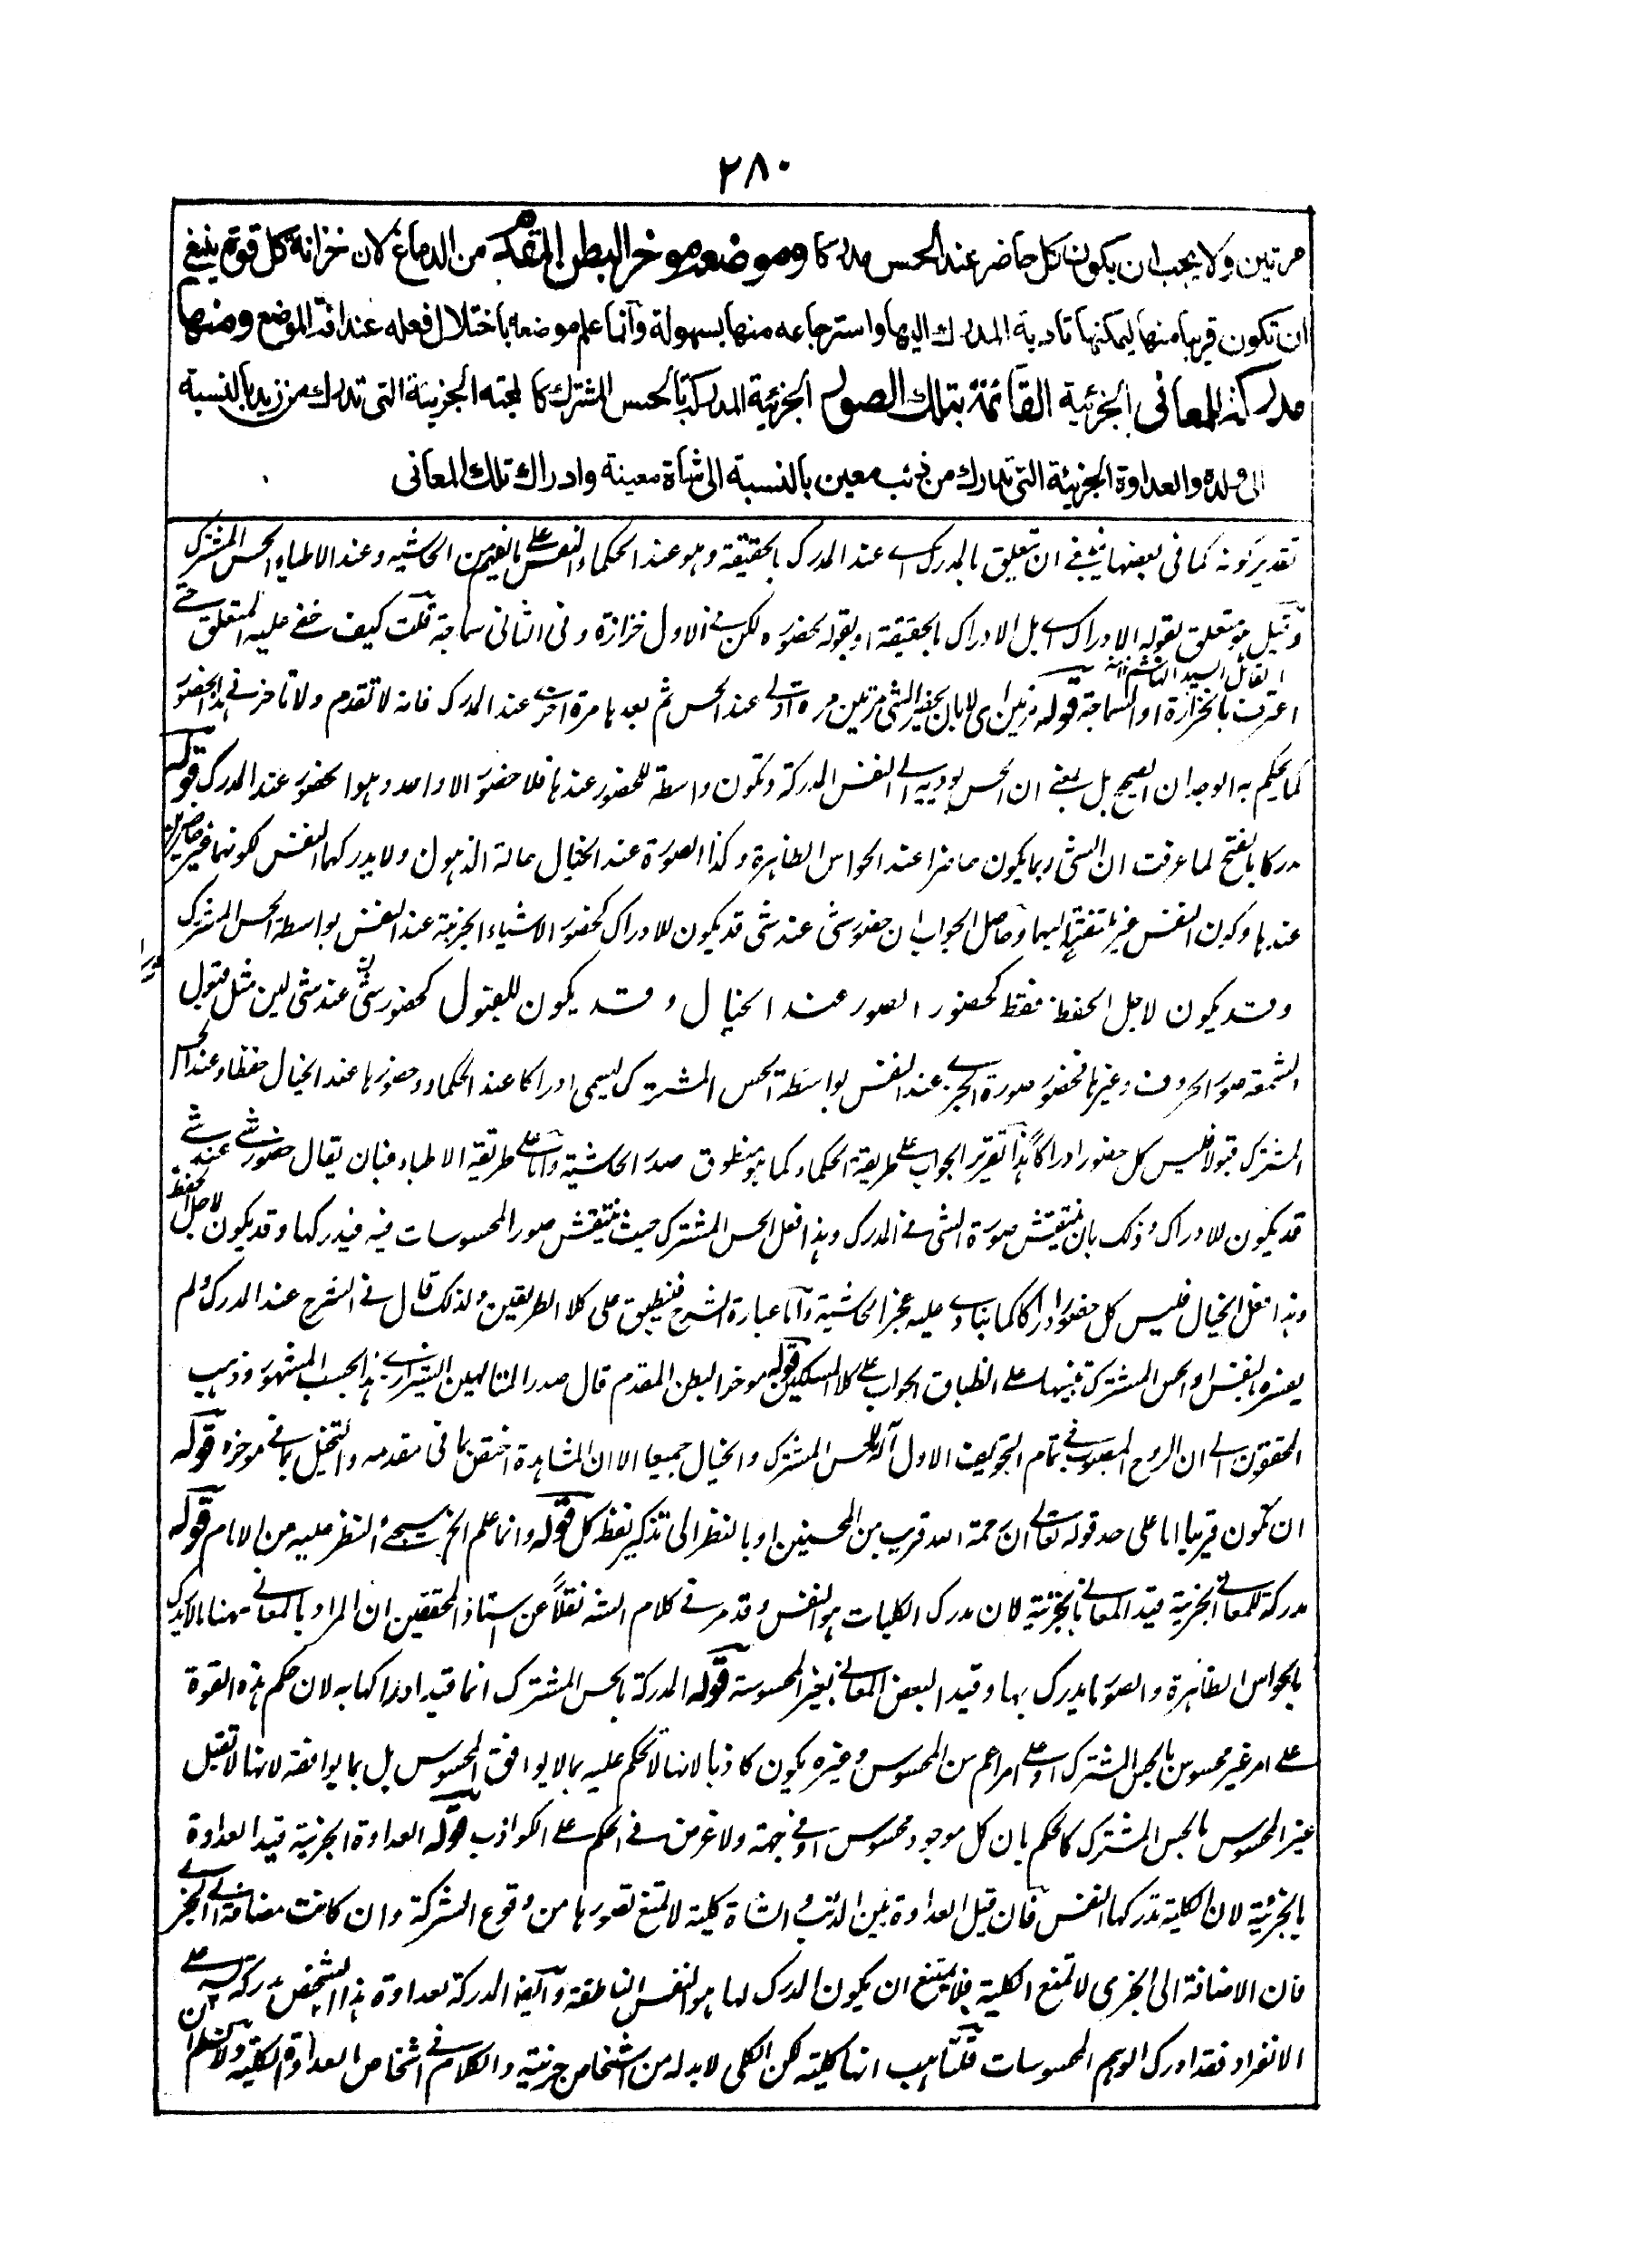 ٢٨٠
مرتين ولا يجب ان يكون كل حاضر عند الحس مدركا وموضعه موخر البطن المتقدم من الدماغ لان خزانة كل قوة ينبغي
ان تكون قريبا منها ليمكنها تادية المدرك اليها واسترجاعه منها بسهولة وانما علم موضعه باختلال فعله عند افة الموضع ومنها
مدركة للمعاني الجزئية القائمة بتلك الصور الجزئية المدركة بالحس المشترك كالمحبة الجزئية التي تدرك من زيد بالنسبة
الى ولده والعداوة الجزئية التي تدرك من ذئب معين بالنسبة الى شاة معينة وادراك تلك المعاني
تقدير كونه كما في بعضها ينبغي ان يتعلق بالمدرك اى عند المدرك بالحقيقة وهو عند الحكماء النفس على ما يفهم من الحاشيه وعند الاطباء الحس المشترك
وقيل هو متعلق بقوله الادراك اى بل الادراك بالحقيقة او بقوله بحضوره لكن في الاول خزازة وفي الثاني سماجة قلت كيف خفي عليه المتعلق حتى
القائل السيد الهاشم ١٢ منه
اعترف بالخزازة او السماجة قوله مرتين اى لا بان يحضر الشئ مرتين مرة اولى عند الحس ثم بعدها مرة اخرى عند المدرك فانه لا تقدم ولا تاخر في هذا الحضور
كما يحكم به الوجدان الصحيح بل بمعنى ان الحس يوديه الى النفس المدركة وتكون واسطة للحضور عندها فلا حضور الا واحد وهو الحضور عند المدرك قوله
مدركا بالفتح لما عرفت ان الشئ ربما يكون حاضرا عند الحواس الظاهرة وكذا الصورة عند الخيال حالة الذهول ولا يدركها النفس لكونهما غير حاضرين
عندها وكون النفس غير ملتفتة اليهما وحاصل الجواب ان حضور شئ عند شئ قد يكون للادراك كحضور الاشياء الجزئية عند النفس بواسطة الحس المشترك
وقد يكون لاجل الحفظ فقط كحضور الصور عند الخيال وقد يكون للقبول كحضور شئ عند شئ لين مثل قبول
الشمعة صور الحروف وغيرها فحضور صورة الجزئي عند النفس بواسطة الحس المشترك يسمى ادراكا عند الحكماء وحضورها عند الخيال حفظا وعند الحس
المشترك قبولا فليس كل حضور ادراكا هذا تقرير الجواب على طريقة الحكماء كما هو منطوق صدر الحاشية واما على طريقة الاطباء فبان يقال حضور شئ عند شئ
قد يكون للادراك وذلك بان ينتقش صورة الشئ في المدرك وهذا فعل الحس المشترك حيث ينتقش صور المحسوسات فيه فيدركها وقد يكون لاجل الحفظ
وهذا فعل الخيال فليس كل حضور ادراكا كما ينادى عليه عجز الحاشية واما عبارة الشرح فينطبق على كلا الطريقين ولذلك قال في الشرح عند المدرك ولم
يفسره بالنفس او الحس المشترك تنبيها على انطباق الجواب على كلا المسلكين قوله موخر البطن المقدم قال صدر المتالهين الشيرازي هذا بحسب المشهور وذهب
المحققون الى ان الروح المصبوب في تمام التجويف الاول آلة للحس المشترك والخيال جميعا الا ان المشاهدة اختص بما في مقدمه والتخيل بما في موخره قوله
ان تكون قريبا اما على حد قوله تعالى ان رحمة الله قريب من المحسنين او بالنظر الى تذكير لفظ كل قوله وانما علم الخ سيجئ النظر عليه من الامام قوله
مدركة للمعاني الجزئية قيد المعاني بالجزئية لان مدرك الكليات هو النفس وقد مر في كلام الشه نقلا عن استاذ المحققين ان المراد بالمعاني ههنا ما لا يدرك
بالحواس الظاهرة والصور ما يدرك بها وقيد البعض المعاني بغير المحسوسة قوله المدركة بالحس المشترك انما قيد ادراكها به لان حكم هذه القوة
على امر غير محسوس بالحس المشترك او على امر اعم من المحسوس وغيره يكون كاذبا لانها لا تحكم عليه بما لا يوافق المحسوس بل بما يوافقه لانها لا تقبل
غير المحسوس بالحس المشترك كالحكم بان كل موجود محسوس او في جهة ولا غرض في الحكم على الكواذب قوله العداوة الجزئية قيد العداوة
بالجزئية لان الكلية تدركها النفس فان قيل العداوة بين الذئب والشاة كلية لا تمنع تصورها من وقوع الشركة وان كانت مضافة الى الجزئي
فان الاضافة الى الجزى لا تمنع الكلية فلا يمتنع ان يكون المدرك لها هو النفس الناطقة وايضا المدركة لعداوة هذا الشخص مدركة له على
الانفراد فقد ادرك الوهم المحسوسات قلنا هب انها كلية لكن الكلى لا بد له من اشخاص جزئية والكلام في اشخاص العداوة الكلية ولا نسلم ان